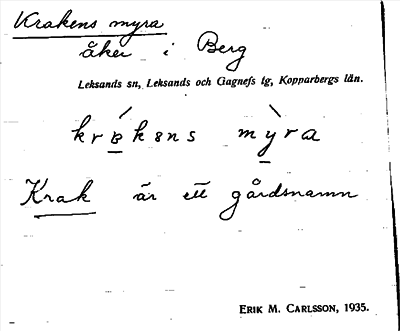 Krakens myra
åker i Berg
Leksands sn, Leksands och Gagnefs tg, Kopparbergs län.
krakens myra
Krak är ett gårdsnamn
ERIK M. CARLSSON, 1935.